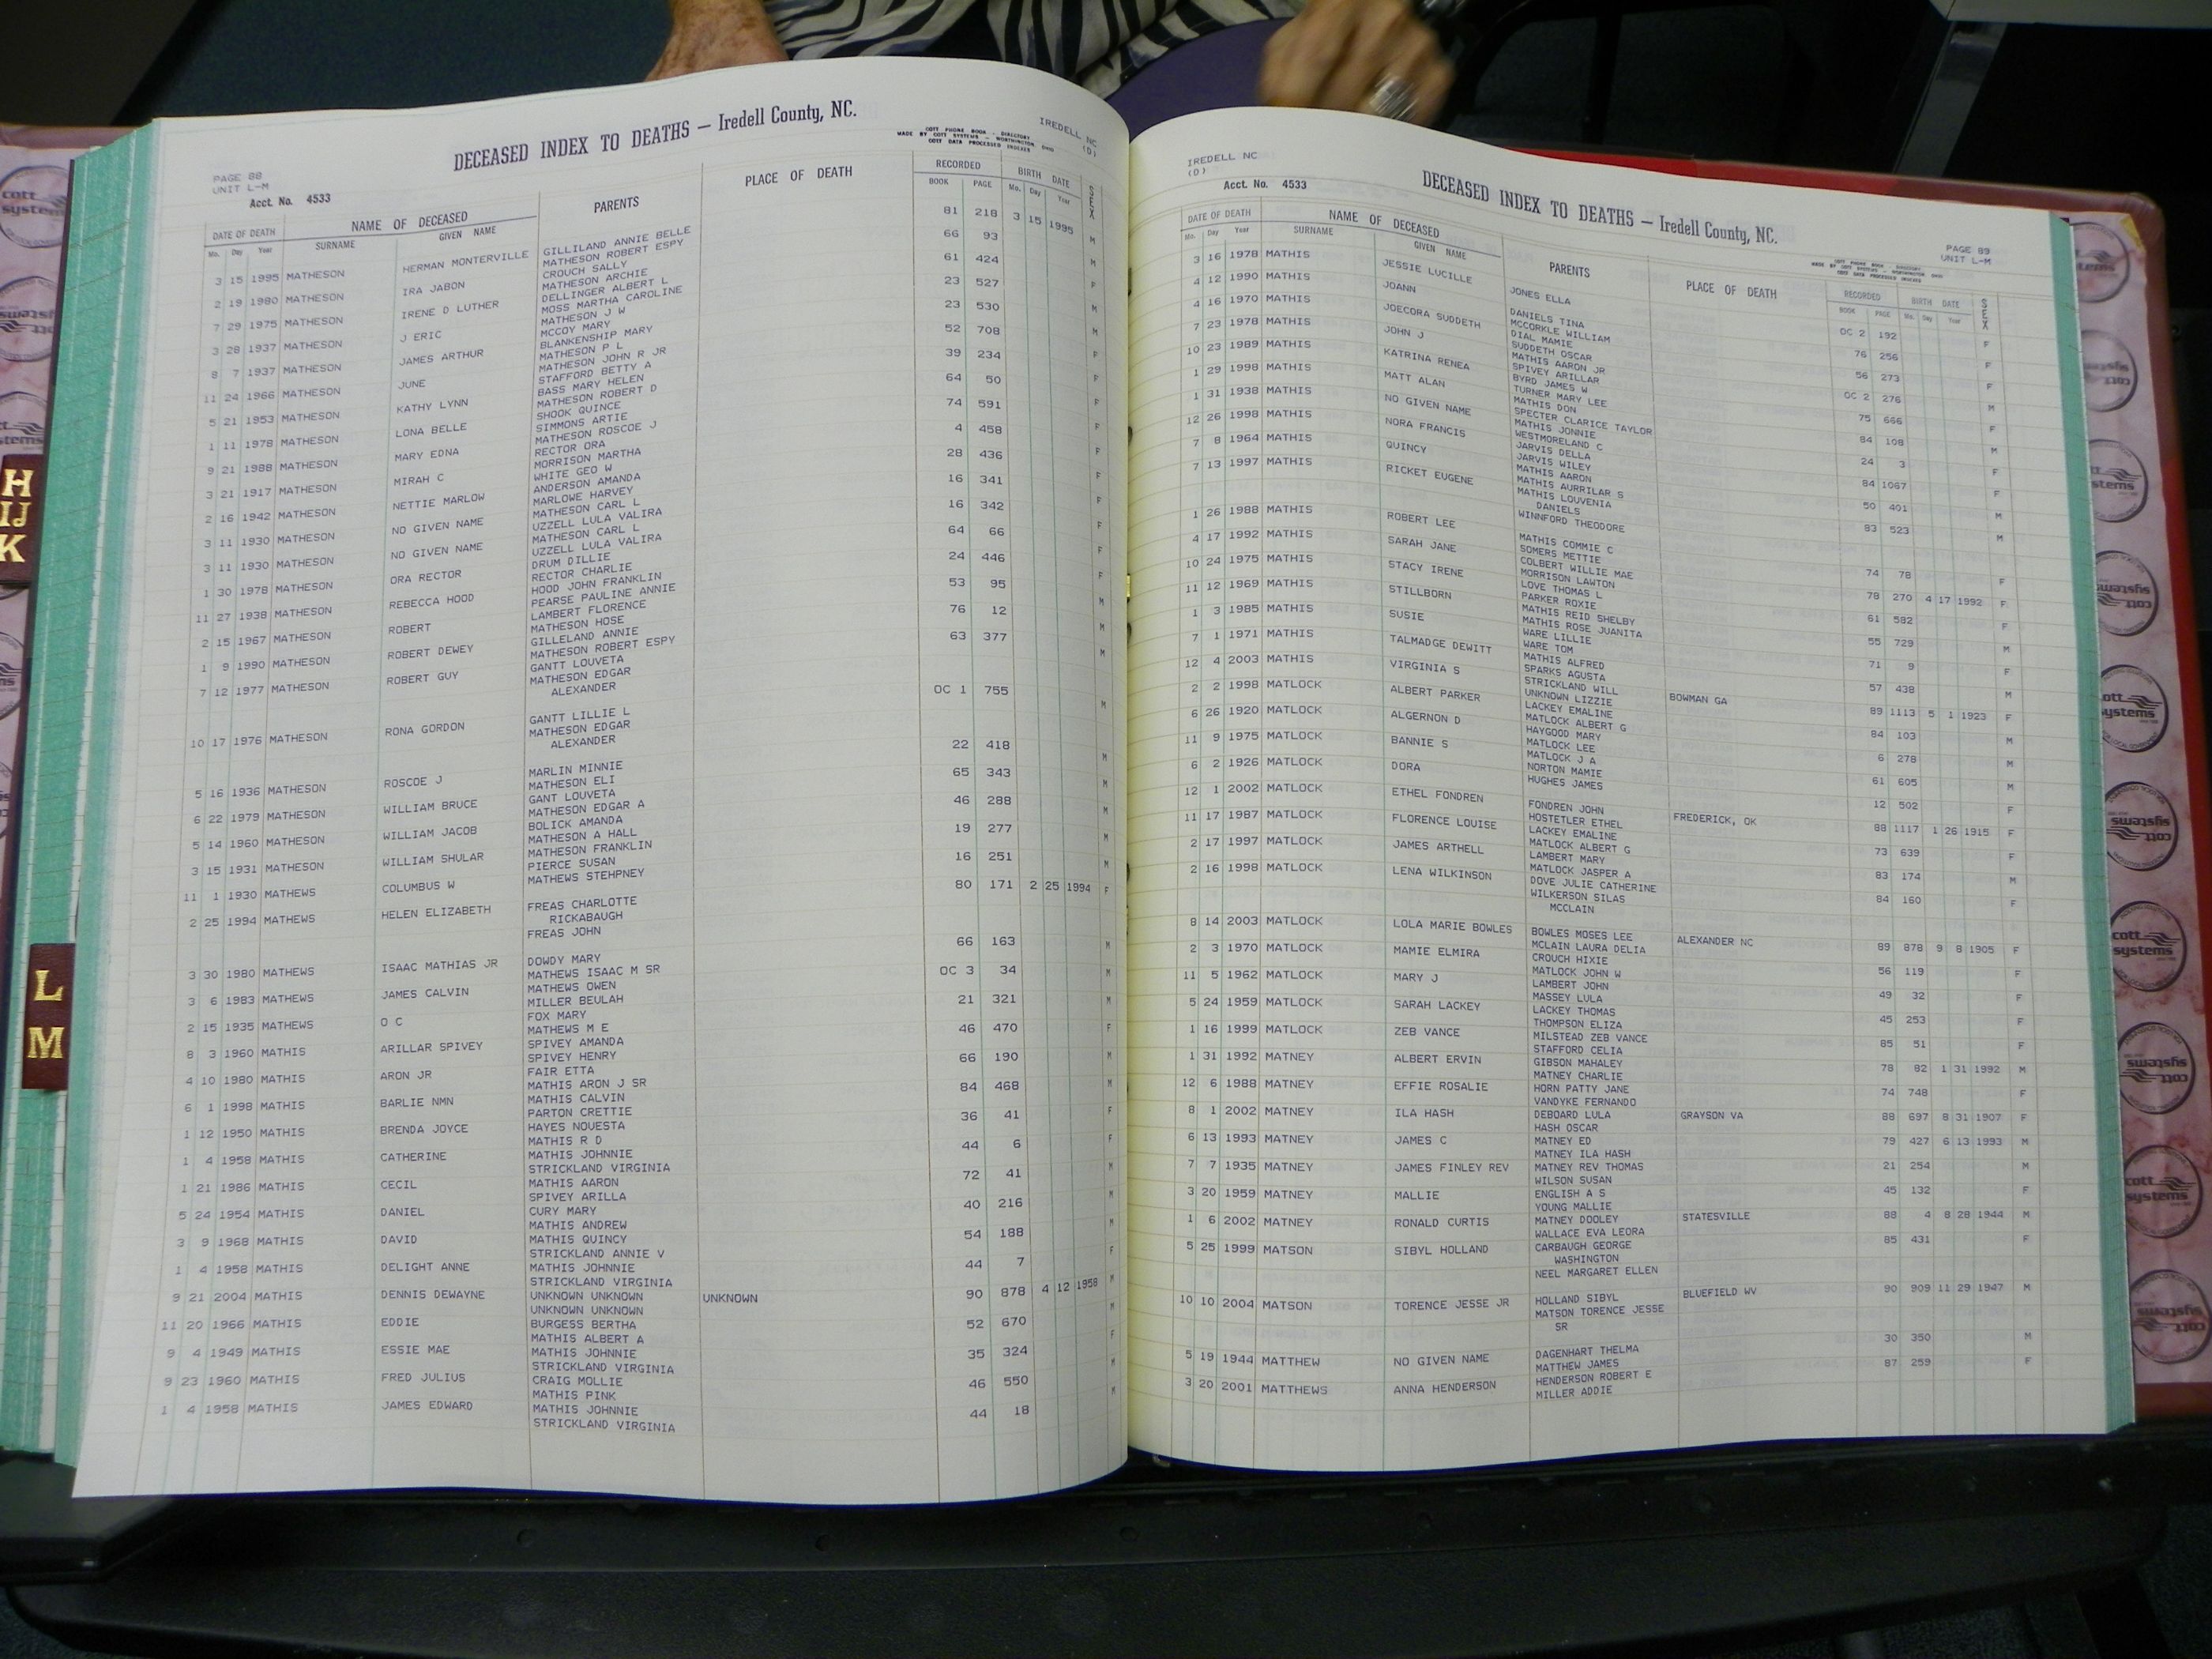 DECEASED INDEX TO DEATHS — Iredell County, NC.
COTT PHONE BOOK - DIRECTORY
MADE BY COTT SYSTEMS - WORTHINGTON, OHIO
COTT DATA PROCESSED INDEXES
IREDELL NC
(D)
PAGE 88
UNIT L-M
Acct. No. 4533
DATE OF DEATH NAME OF DECEASED PARENTS PLACE OF DEATH RECORDED BIRTH DATE SEX
Mo. Day Year SURNAME GIVEN NAME BOOK PAGE Mo. Day Year
3 15 1995 MATHESON HERMAN MONTERVILLE GILLILAND ANNIE BELLE 81 218 3 15 1995 M
MATHESON ROBERT ESPY
2 19 1980 MATHESON IRA JABON CROUCH SALLY 66 93 M
MATHESON ARCHIE
7 29 1975 MATHESON IRENE D LUTHER DELLINGER ALBERT L 61 424 F
MOSS MARTHA CAROLINE
3 28 1937 MATHESON J ERIC MATHESON J W 23 527 M
MCCOY MARY
8 7 1937 MATHESON JAMES ARTHUR BLANKENSHIP MARY 23 530 M
MATHESON P L
11 24 1966 MATHESON JUNE MATHESON JOHN R JR 52 708 F
STAFFORD BETTY A
5 21 1953 MATHESON KATHY LYNN BASS MARY HELEN 39 234 F
MATHESON ROBERT D
1 11 1978 MATHESON LONA BELLE SHOOK QUINCE 64 50 F
SIMMONS ARTIE
9 21 1988 MATHESON MARY EDNA MATHESON ROSCOE J 74 591 F
RECTOR ORA
3 21 1917 MATHESON MIRAH C MORRISON MARTHA 4 458 F
WHITE GEO W
2 16 1942 MATHESON NETTIE MARLOW ANDERSON AMANDA 28 436 F
MARLOWE HARVEY
3 11 1930 MATHESON NO GIVEN NAME MATHESON CARL L 16 341 F
UZZELL LULA VALIRA
3 11 1930 MATHESON NO GIVEN NAME MATHESON CARL L 16 342
UZZELL LULA VALIRA
1 30 1978 MATHESON ORA RECTOR DRUM DILLIE 64 66 F
RECTOR CHARLIE
11 27 1938 MATHESON REBECCA HOOD HOOD JOHN FRANKLIN 24 446 F
PEARSE PAULINE ANNIE
2 15 1967 MATHESON ROBERT LAMBERT FLORENCE 53 95 M
MATHESON HOSE
1 9 1990 MATHESON ROBERT DEWEY GILLELAND ANNIE 76 12 M
MATHESON ROBERT ESPY
7 12 1977 MATHESON ROBERT GUY GANTT LOUVETA 63 377 M
MATHESON EDGAR
ALEXANDER
10 17 1976 MATHESON RONA GORDON GANTT LILLIE L OC 1 755 M
MATHESON EDGAR
ALEXANDER
5 16 1936 MATHESON ROSCOE J MARLIN MINNIE 22 418 M
MATHESON ELI
6 22 1979 MATHESON WILLIAM BRUCE GANT LOUVETA 65 343 M
MATHESON EDGAR A
5 14 1960 MATHESON WILLIAM JACOB BOLICK AMANDA 46 288 M
MATHESON A HALL
3 15 1931 MATHESON WILLIAM SHULAR MATHESON FRANKLIN 19 277 M
PIERCE SUSAN
11 1 1930 MATHEWS COLUMBUS W MATHEWS STEHPNEY 16 251 M
2 25 1994 MATHEWS HELEN ELIZABETH FREAS CHARLOTTE 80 171 2 25 1994 F
RICKABAUGH
FREAS JOHN
3 30 1980 MATHEWS ISAAC MATHIAS JR DOWDY MARY 66 163 M
MATHEWS ISAAC M SR
3 6 1983 MATHEWS JAMES CALVIN MATHEWS OWEN OC 3 34 M
MILLER BEULAH
2 15 1935 MATHEWS O C FOX MARY 21 321 M
MATHEWS M E
8 3 1960 MATHIS ARILLAR SPIVEY SPIVEY AMANDA 46 470 F
SPIVEY HENRY
4 10 1980 MATHIS ARON JR FAIR ETTA 66 190 M
MATHIS ARON J SR
6 1 1998 MATHIS BARLIE NMN MATHIS CALVIN 84 468 M
PARTON CRETTIE
1 12 1950 MATHIS BRENDA JOYCE HAYES NOUESTA 36 41 F
MATHIS R D
1 4 1958 MATHIS CATHERINE MATHIS JOHNNIE 44 6 F
STRICKLAND VIRGINIA
1 21 1986 MATHIS CECIL MATHIS AARON 72 41 M
SPIVEY ARILLA
5 24 1954 MATHIS DANIEL CURY MARY 40 216 M
MATHIS ANDREW
3 9 1968 MATHIS DAVID MATHIS QUINCY 54 188 M
STRICKLAND ANNIE V
1 4 1958 MATHIS DELIGHT ANNE MATHIS JOHNNIE 44 7 F
STRICKLAND VIRGINIA
9 21 2004 MATHIS DENNIS DEWAYNE UNKNOWN UNKNOWN UNKNOWN 90 878 4 12 1958 M
UNKNOWN UNKNOWN
11 20 1966 MATHIS EDDIE BURGESS BERTHA 52 670 M
MATHIS ALBERT A
9 4 1949 MATHIS ESSIE MAE MATHIS JOHNNIE 35 324 F
STRICKLAND VIRGINIA
9 23 1960 MATHIS FRED JULIUS CRAIG MOLLIE 46 550 M
MATHIS PINK
1 4 1958 MATHIS JAMES EDWARD MATHIS JOHNNIE 44 18 M
STRICKLAND VIRGINIA
IREDELL NC
(D)
Acct. No. 4533
DECEASED INDEX TO DEATHS — Iredell County, NC.
PAGE 89
UNIT L-M
COTT PHONE BOOK - DIRECTORY
MADE BY COTT SYSTEMS - WORTHINGTON, OHIO
COTT DATA PROCESSED INDEXES
DATE OF DEATH NAME OF DECEASED PARENTS PLACE OF DEATH RECORDED BIRTH DATE SEX
Mo. Day Year SURNAME GIVEN NAME BOOK PAGE Mo. Day Year
3 16 1978 MATHIS JESSIE LUCILLE JONES ELLA OC 2 192 F
4 12 1990 MATHIS JOANN DANIELS TINA 76 256 F
MCCORKLE WILLIAM
4 16 1970 MATHIS JOECORA SUDDETH DIAL MAMIE 56 273 F
SUDDETH OSCAR
7 23 1978 MATHIS JOHN J MATHIS AARON JR OC 2 276 M
SPIVEY ARILLAR
10 23 1989 MATHIS KATRINA RENEA BYRD JAMES W 75 666 F
TURNER MARY LEE
1 29 1998 MATHIS MATT ALAN MATHIS DON 84 108 M
SPECTER CLARICE TAYLOR
1 31 1938 MATHIS NO GIVEN NAME MATHIS JONNIE 24 3 F
WESTMORELAND C
12 26 1998 MATHIS NORA FRANCIS JARVIS DELLA 84 1067 F
JARVIS WILEY
7 8 1964 MATHIS QUINCY MATHIS AARON 50 401 M
MATHIS AURRILAR S
7 13 1997 MATHIS RICKET EUGENE MATHIS LOUVENIA 83 523 M
DANIELS
WINNFORD THEODORE
1 26 1988 MATHIS ROBERT LEE MATHIS COMMIE C 74 78 F
SOMERS METTIE
4 17 1992 MATHIS SARAH JANE COLBERT WILLIE MAE 78 270 4 17 1992 F
MORRISON LAWTON
10 24 1975 MATHIS STACY IRENE LOVE THOMAS L 61 582 F
PARKER ROXIE
11 12 1969 MATHIS STILLBORN MATHIS REID SHELBY 55 729 M
MATHIS ROSE JUANITA
1 3 1985 MATHIS SUSIE WARE LILLIE 71 9 F
WARE TOM
7 1 1971 MATHIS TALMADGE DEWITT MATHIS ALFRED 57 438 M
SPARKS AGUSTA
12 4 2003 MATHIS VIRGINIA S STRICKLAND WILL BOWMAN GA 89 1113 5 1 1923 F
UNKNOWN LIZZIE
2 2 1998 MATLOCK ALBERT PARKER LACKEY EMALINE 84 103 M
MATLOCK ALBERT G
6 26 1920 MATLOCK ALGERNON D HAYGOOD MARY 6 278 M
MATLOCK LEE
11 9 1975 MATLOCK BANNIE S MATLOCK J A 61 605 M
NORTON MAMIE
6 2 1926 MATLOCK DORA HUGHES JAMES 12 502 F
12 1 2002 MATLOCK ETHEL FONDREN FONDREN JOHN FREDERICK, OK 88 1117 1 26 1915 F
HOSTETLER ETHEL
11 17 1987 MATLOCK FLORENCE LOUISE LACKEY EMALINE 73 639 F
MATLOCK ALBERT G
2 17 1997 MATLOCK JAMES ARTHELL LAMBERT MARY 83 174 M
MATLOCK JASPER A
2 16 1998 MATLOCK LENA WILKINSON DOVE JULIE CATHERINE 84 160 F
WILKERSON SILAS
MCCLAIN
8 14 2003 MATLOCK LOLA MARIE BOWLES BOWLES MOSES LEE ALEXANDER NC 89 878 9 8 1905 F
MCLAIN LAURA DELIA
2 3 1970 MATLOCK MAMIE ELMIRA CROUCH HIXIE 56 119 F
MATLOCK JOHN W
11 5 1962 MATLOCK MARY J LAMBERT JOHN 49 32 F
MASSEY LULA
5 24 1959 MATLOCK SARAH LACKEY LACKEY THOMAS 45 253 F
THOMPSON ELIZA
1 16 1999 MATLOCK ZEB VANCE MILSTEAD ZEB VANCE 85 51 F
STAFFORD CELIA
1 31 1992 MATNEY ALBERT ERVIN GIBSON MAHALEY 78 82 1 31 1992 M
MATNEY CHARLIE
12 6 1988 MATNEY EFFIE ROSALIE HORN PATTY JANE 74 748 F
VANDYKE FERNANDO
8 1 2002 MATNEY ILA HASH DEBOARD LULA GRAYSON VA 88 697 8 31 1907 F
HASH OSCAR
6 13 1993 MATNEY JAMES C MATNEY ED 79 427 6 13 1993 M
MATNEY ILA HASH
7 7 1935 MATNEY JAMES FINLEY REV MATNEY REV THOMAS 21 254 M
WILSON SUSAN
3 20 1959 MATNEY MALLIE ENGLISH A S 45 132 F
YOUNG MALLIE
1 6 2002 MATNEY RONALD CURTIS MATNEY DOOLEY STATESVILLE 88 4 8 28 1944 M
WALLACE EVA LEORA
5 25 1999 MATSON SIBYL HOLLAND CARBAUGH GEORGE 85 431 F
WASHINGTON
NEEL MARGARET ELLEN
10 10 2004 MATSON TORENCE JESSE JR HOLLAND SIBYL BLUEFIELD WV 90 909 11 29 1947 M
MATSON TORENCE JESSE
SR
5 19 1944 MATTHEW NO GIVEN NAME DAGENHART THELMA 30 350 M
MATTHEW JAMES
3 20 2001 MATTHEWS ANNA HENDERSON HENDERSON ROBERT E 87 259 F
MILLER ADDIE
H
IJ
K
L
M
cott
systems